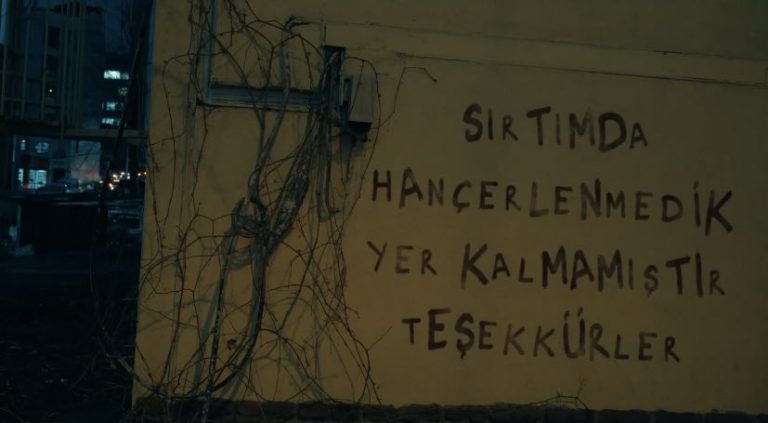 SIRTIMDA
HANÇERLENMEDİK
YER KALMAMIŞTIR
TEŞEKKÜRLER